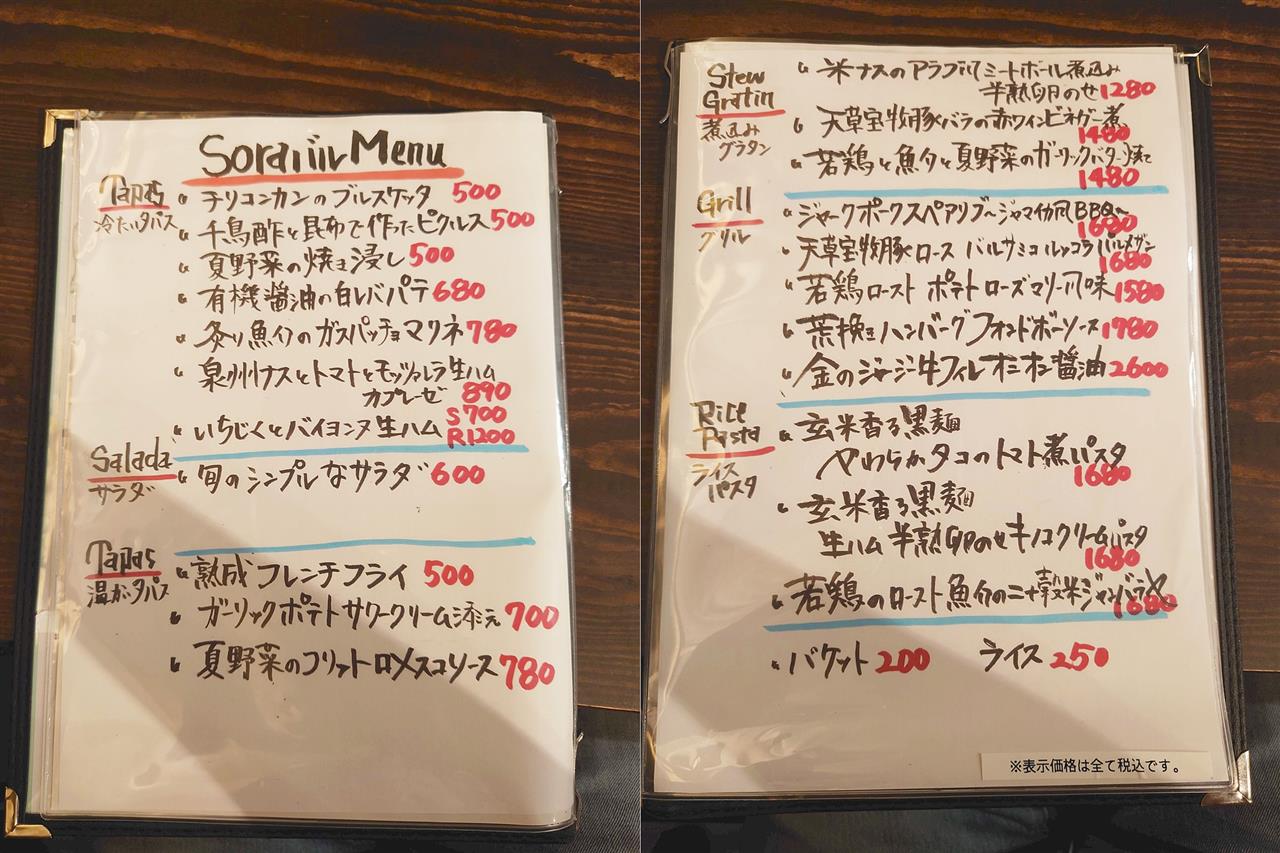 Soraバル Menu
Tapas
冷たいタパス
チリコンカンのブルスケッタ 500
千鳥酢と昆布で作ったピクルス 500
夏野菜の焼き浸し 500
有機醤油の白レバパテ 680
炙り魚介のガスパッチョマリネ 780
泉州ナスとトマトとモッツァレラ生ハム
カプレーゼ 890
いちじくとバイヨンヌ生ハム S700
R1200
Salada
サラダ
旬のシンプルなサラダ 600
Tapas
温かいタパス
熟成フレンチフライ 500
ガーリックポテトサワークリーム添え 700
夏野菜のフリット ロメスコソース 780
Stew
Gratin
煮込み
グラタン
米ナスのアラブ風ミートボール煮込み
半熟卵のせ 1280
天草宝牧豚バラの赤ワインビネガー煮
1480
若鶏と魚介と夏野菜のガーリックバター焼き
1480
Grill
グリル
ジャークポークスペアリブ〜ジャマイカ風BBQ〜
1680
天草宝牧豚ロース バルサミコ ルッコラ パルメザン
1680
若鶏ロースト ポテトローズマリー風味 1580
荒挽きハンバーグフォンドボーソース 1780
金のジャージー牛フィレ オニオン醤油 2600
Rice
Pasta
ライス
パスタ
玄米香る黒麺
やわらかタコのトマト煮パスタ
1680
玄米香る黒麺
生ハム 半熟卵のせキノコクリームパスタ
1680
若鶏のロースト魚介の二十穀米ジャンバラヤ
1680
バケット 200 ライス 250
※表示価格は全て税込です。